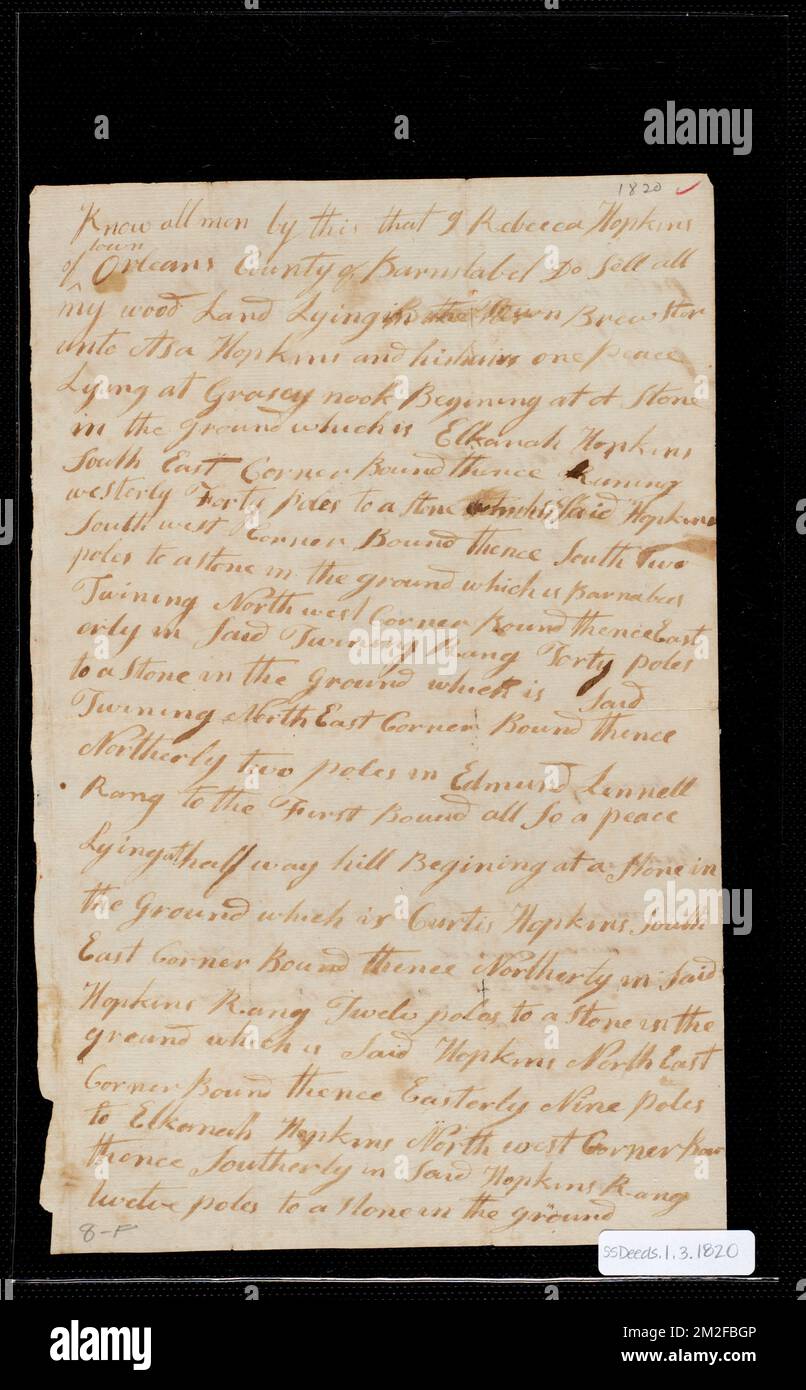 1820
Know all men by this that I Rebecca Hopkins
town
of Orleans County of Barnslabel Do Sell all
my wood Land Lying in the Town Brewstor
unto Asa Hopkins and his heirs one peace
Lying at Grasey nook Begining at A Stone
in the ground which is Elkanah Hopkins
South East Corner Bound thence Runing
westerly Forty poles to a stone which is Said Hopkins
South west Corner Bound thence South Two
poles to a stone in the ground which is Barnabas
Twining North west Corner Bound thence East
erly in Said Twining Rang Forty poles
to a Stone in the Ground which is Said
Twining North East Corner Bound thence
Northerly two poles in Edmund Linnell
Rang to the First Bound all So a peace
Lying at half way hill Begining at a Stone in
the Ground which is Curtis Hopkins South
East Corner Bound thence Northerly in Said
Hopkins Rang Twelv poles to a Stone in the
ground which is Said Hopkins North East
Corner Bound thence Easterly Nine poles
to Elkanah Hopkins North west Corner Boun
thence Southerly in Said Hopkins Rang
twelve poles to a stone in the ground
8-F
SSDeeds.1.3.1820
alamy
Image ID: 2M2FBGP
www.alamy.com